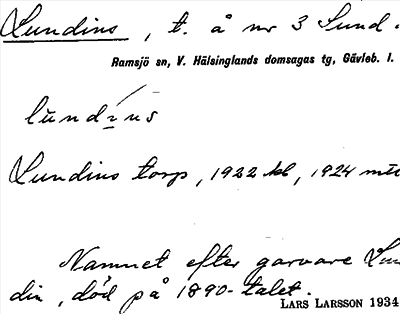 Lundins, t. å nr 3 Sund.
Ramsjö sn, V. Hälsinglands domsagas tg, Gävleb. l.
lŭndịns
Lundins torp, 1922 kb, 1924
Namnet efter garvare Lun
din, död på 1890-talet.
LARS LARSSON 1934